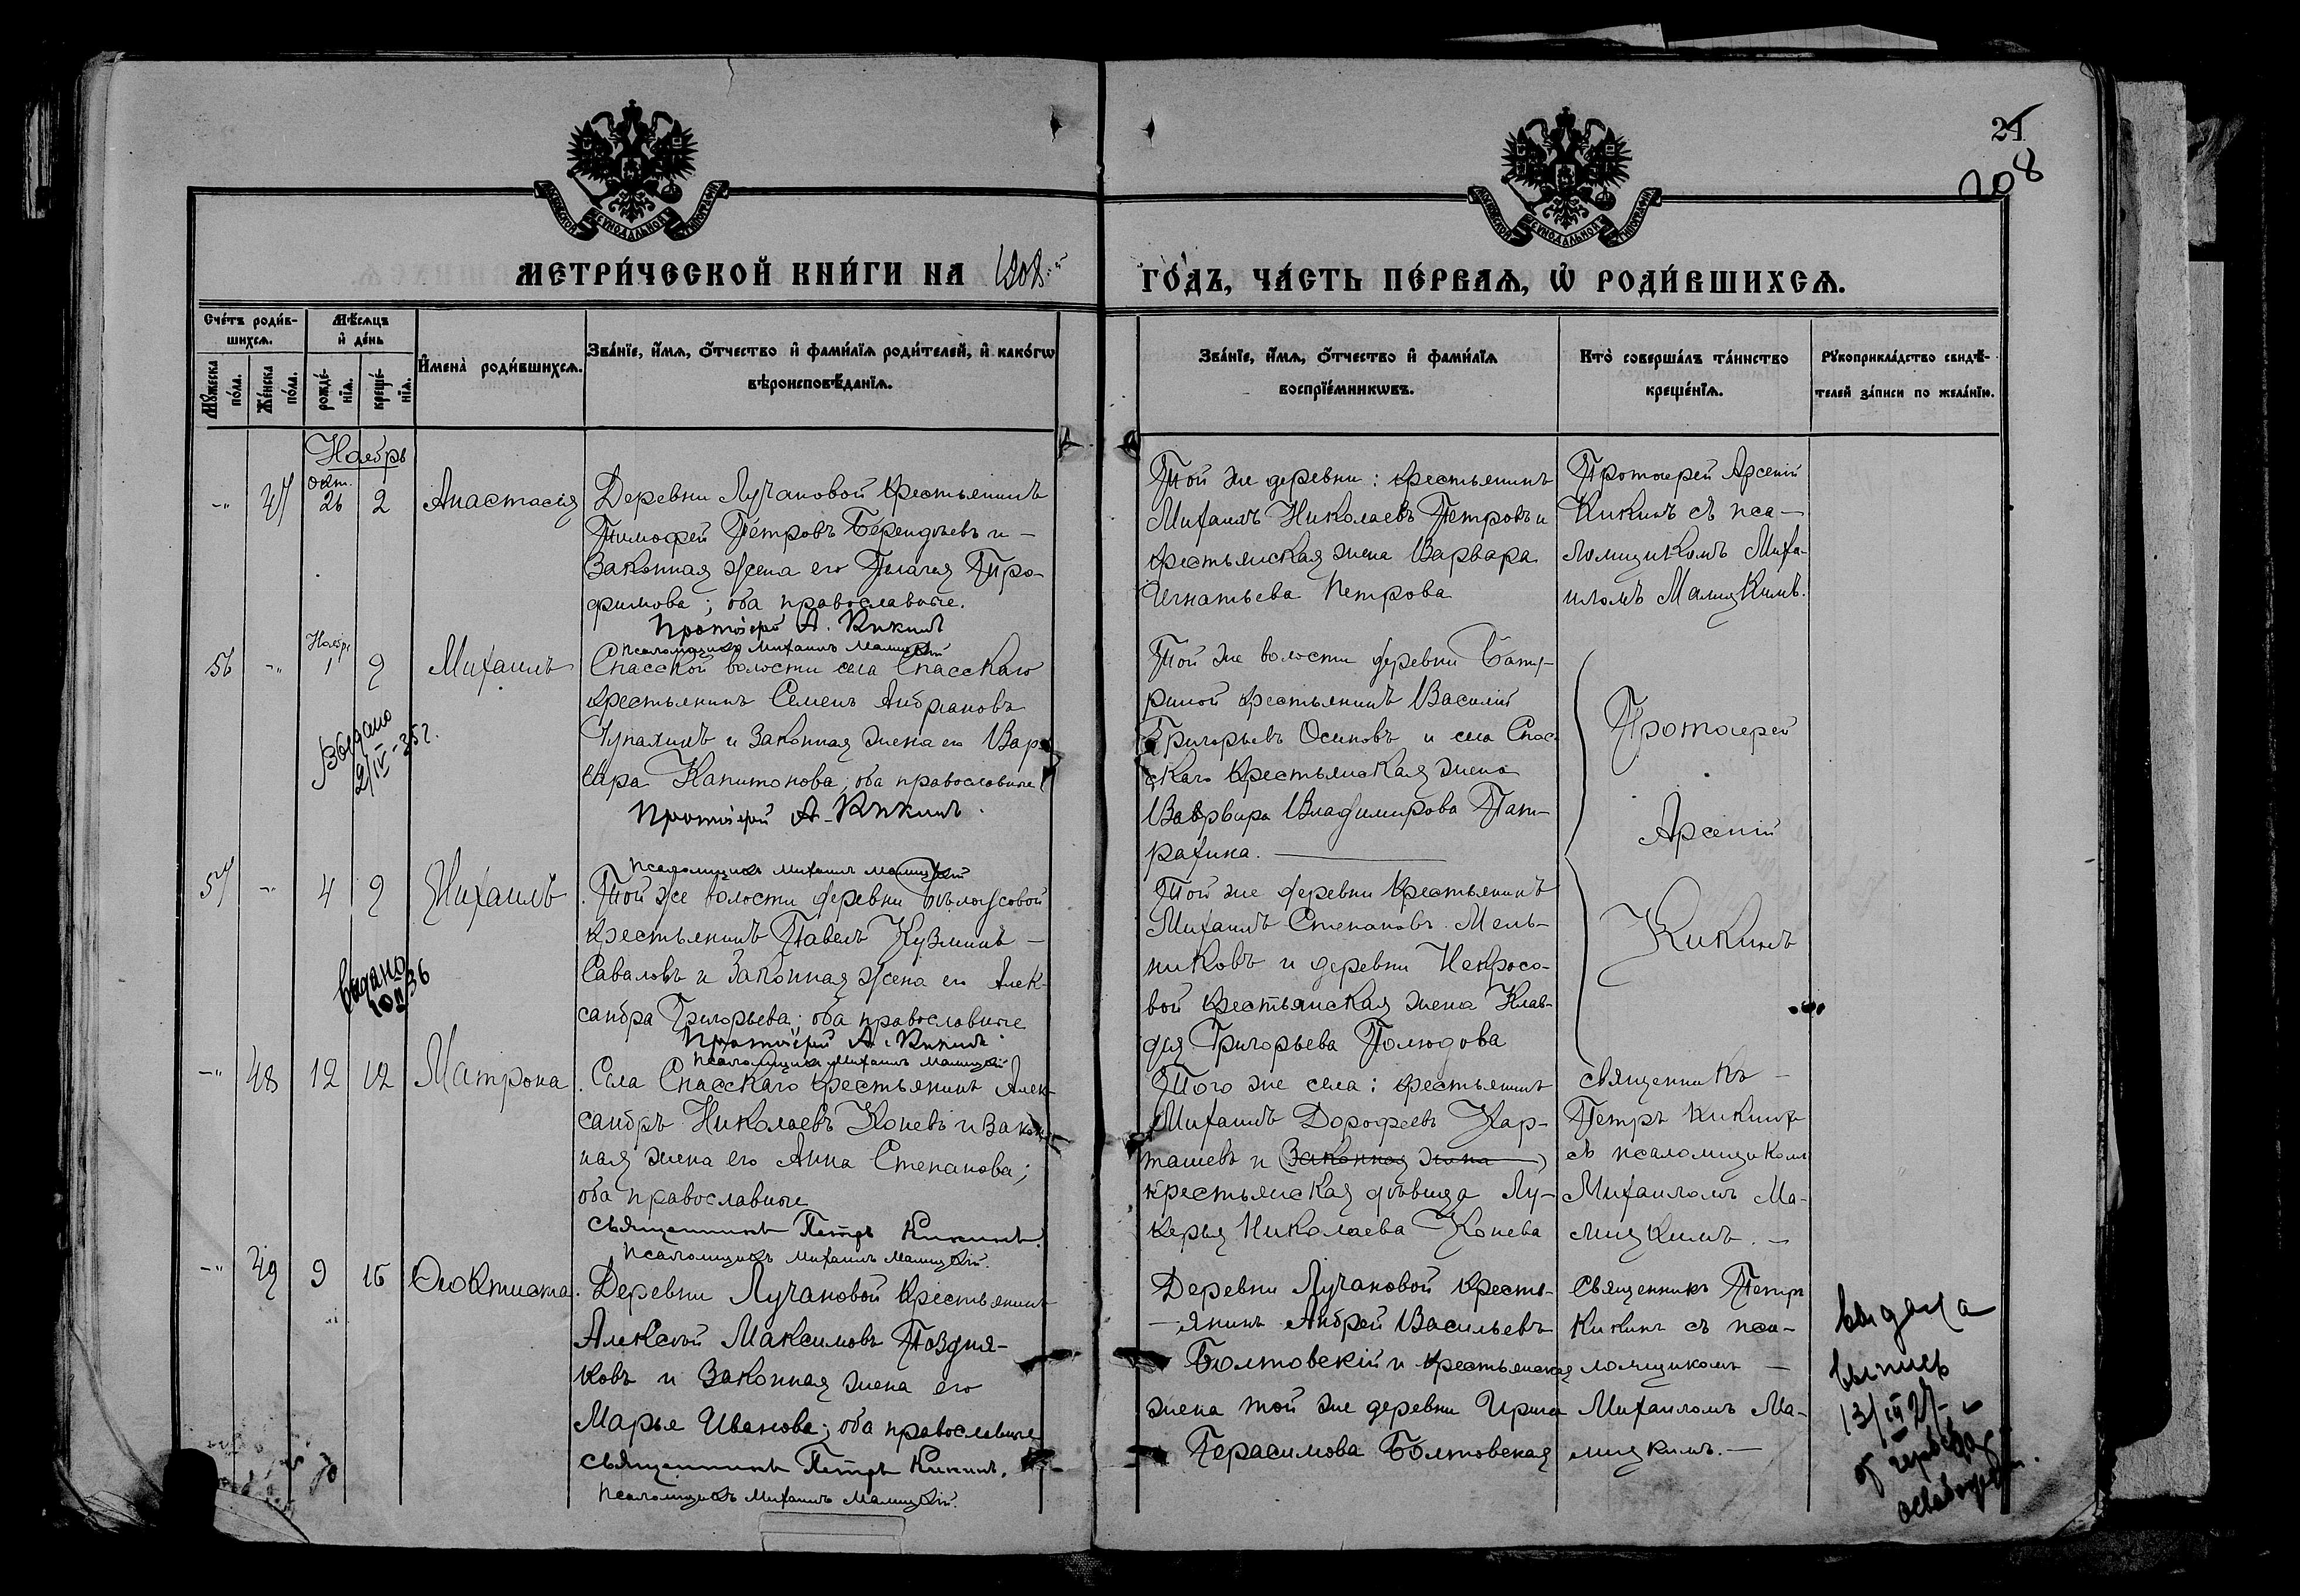 21
208
МЕТРИ́ЧЕСКОЙ КНИ́ГИ НА 1908й
ГО́ДЪ, ЧА́СТЬ ПЕ́РВАѦ, Ѡ҆ РОДИ́ВШИХСѦ.
Сче́тъ роди́в-
шихсѧ.
Мѣ́сѧцъ
и҆ де́нь
Мꙋ́жеска
по́ла.
Же́нска
по́ла.
рожде́-
нїѧ.
креще́-
нїѧ.
И҆мена̀ роди́вшихсѧ.
Зва́нїе, и҆́мѧ, ѻ҆́тчество и҆ фами́лїѧ роди́телей, и҆ како́гѡ
вѣроисповѣ́данїѧ.
Зва́нїе, и҆́мѧ, ѻ҆́тчество и҆ фами́лїѧ
воспрїе́мникѡвъ.
Кто̀ соверша́лъ та́инство
креще́нїѧ.
Рꙋкоприкла́дство свидѣ́-
телей за́писи по жела́нїю.
Ноябрь
Окт.
-"- 47 26 2 Анастасія
Деревни Лучановой крестьянинъ
Тимофей Петровъ Берендѣевъ и -
законная жена его Пелагея Тро-
фимова; оба православные.
Протоіерей А. Кикинъ
Псаломщикъ Михаилъ Малицкій
Той же деревни: крестьянинъ
Михаилъ Николаевъ Петровъ и
крестьянская жена Варвара
Игнатьева Петрова
Протоіерей Арсеній
Кикинъ съ пса-
ломщикомъ Миха-
иломъ Малицкимъ.
Ноябр
56 -"- 1 9 Михаилъ
Спасской волости села Спасскаго
крестьянинъ Семенъ Андріановъ
Чупахинъ и законная жена его Вар-
вара Капитонова; оба православные
Протоіерей А. Кикинъ
Псаломщикъ Михаилъ Малицкій
Выдано
2/IV-35г.
Той же волости деревни Баты-
риной крестьянинъ Василій
Григорьевъ Осиповъ и села Спас-
скаго крестьянская жена
Варвара Владимирова Пат-
рахина.
Протоіерей
Арсеній
Кикинъ
57 -"- 4 9 Михаилъ
Той же волости деревни Бѣлоусовой
крестьянинъ Павелъ Кузминъ -
Саваловъ и законная жена его Алек-
сандра Григорьева; оба православные
Протоіерей А. Кикинъ
Псаломщикъ Михаилъ Малицкій
выдано
10/II 36
Той же деревни крестьянинъ
Михаилъ Степановъ Мель-
никовъ и деревни Некрасо-
вой крестьянская жена Клав-
дія Григорьева Полюдова
-"- 48 12 12 Матрона
Села Спасскаго крестьянинъ Алек-
сандръ Николаевъ Коневъ и закон-
ная жена его Анна Степанова;
оба православные
Священникъ Петръ Кикинъ.
Псаломщикъ Михаилъ Малицкій.
Того же села: крестьянинъ
Михаилъ Дорофеевъ Кар-
ташевъ и (законная жена)
крестьянская дѣвица Лу-
керья Николаева Конева
священникъ -
Петръ Кикинъ
съ псаломщикомъ
Михаиломъ Ма-
лицкимъ. -
-"- 49 9 16 Ѳеоктиста.
Деревни Лучановой крестьянинъ
Алексѣй Максимовъ Поздня-
ковъ и законная жена его
Марья Иванова; оба православные
Священникъ Петръ Кикинъ.
Псаломщикъ Михаилъ Малицкій.
Деревни Лучановой кресть-
-янинъ Андрей Васильевъ
Болтовскій и крестьянская
жена той же деревни Ирина
Герасимова Болтовская
Священникъ Петръ
Кикинъ съ пса-
ломщикомъ -
Михаиломъ Ма-
лицкимъ. -
выдана
выпись
13/III 27
от